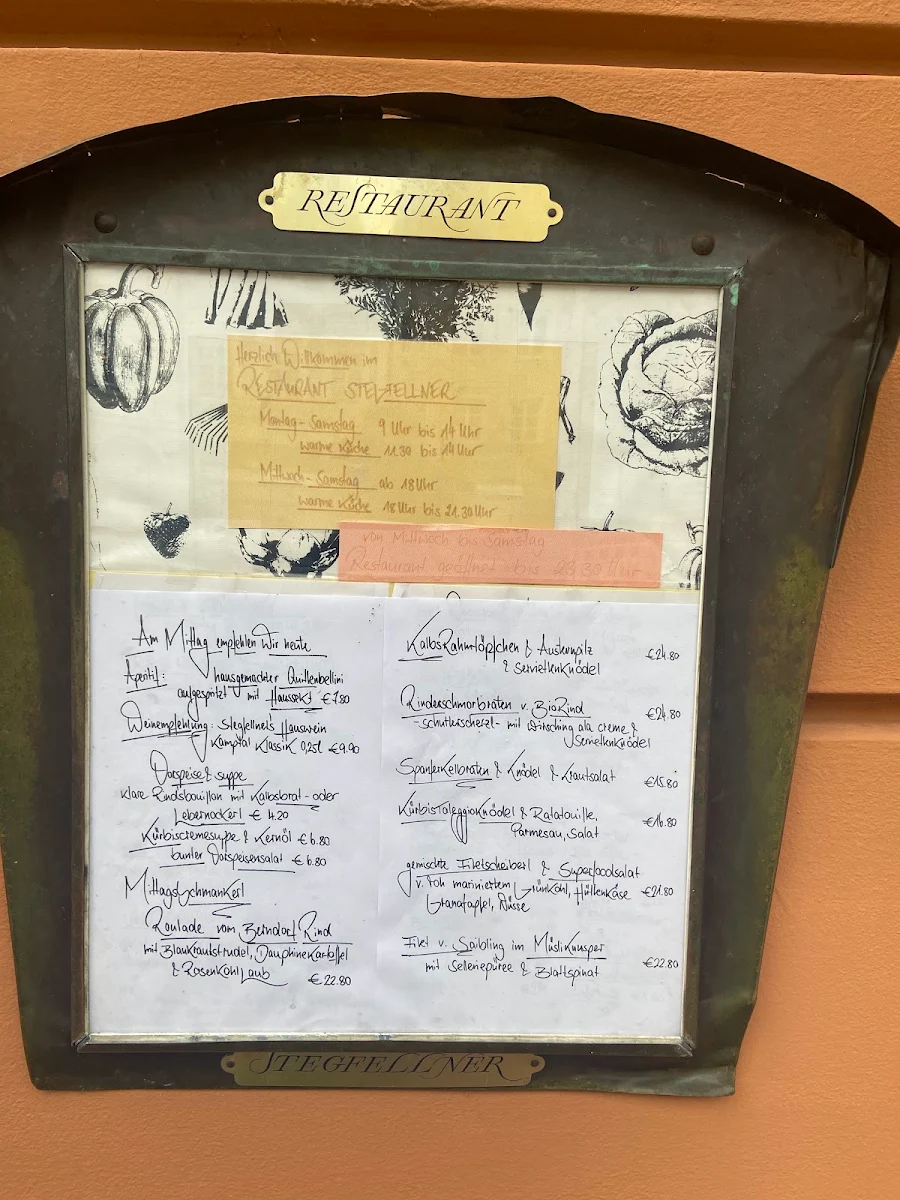 RESTAURANT
Herzlich Willkommen im
RESTAURANT STEGFELLNER
Montag - Samstag 9 Uhr bis 14 Uhr
warme Küche 11.30 bis 14 Uhr
Mittwoch - Samstag ab 18 Uhr
warme Küche 18 Uhr bis 21.30 Uhr
von Mittwoch bis Samstag
Restaurant geöffnet bis 23.30 Uhr
Am Mittag empfehlen Wir heute
Aperitif: hausgemachter Quittenbellini
aufgespritzt mit Haussekt € 7.80
Weinempfehlung: Stegfellner's Hauswein
Kamptal Klassik 0,25l € 9.90
Vorspeise & Suppe
klare Rindsbouillon mit Kalbsbrat - oder
Lebernockerl € 4.20
Kürbiscremesuppe & Kernöl € 6.80
bunter Vorspeisensalat € 6.80
Mittagsschmankerl
Roulade vom Berndorf Rind
mit Blaukrautstrudel, Dauphinekartoffel
& Rosenkohl Laub
€ 22.80
KalbsRahmtöpfchen & Austernpilz
& Serviettenknödel €24.80
Rinderschmorbraten v. BioRind €24.80
-Schulterscherzl- mit Wirsching ala creme &
Serviettenknödel
Spanferkelbraten & Knödel & Krautsalat €15.80
KürbisTaleggioknödel & Ratatouille,
Parmesan, Salat €16.80
gemischte Filetscheiberl & Superfoodsalat
v. roh mariniertem Grünkohl, Hüttenkäse €21.80
Granatapfel, Nüsse
Filet v. Saibling im Müsliknusper
mit Selleriepüree & Blattspinat €22.80
STEGFELLNER